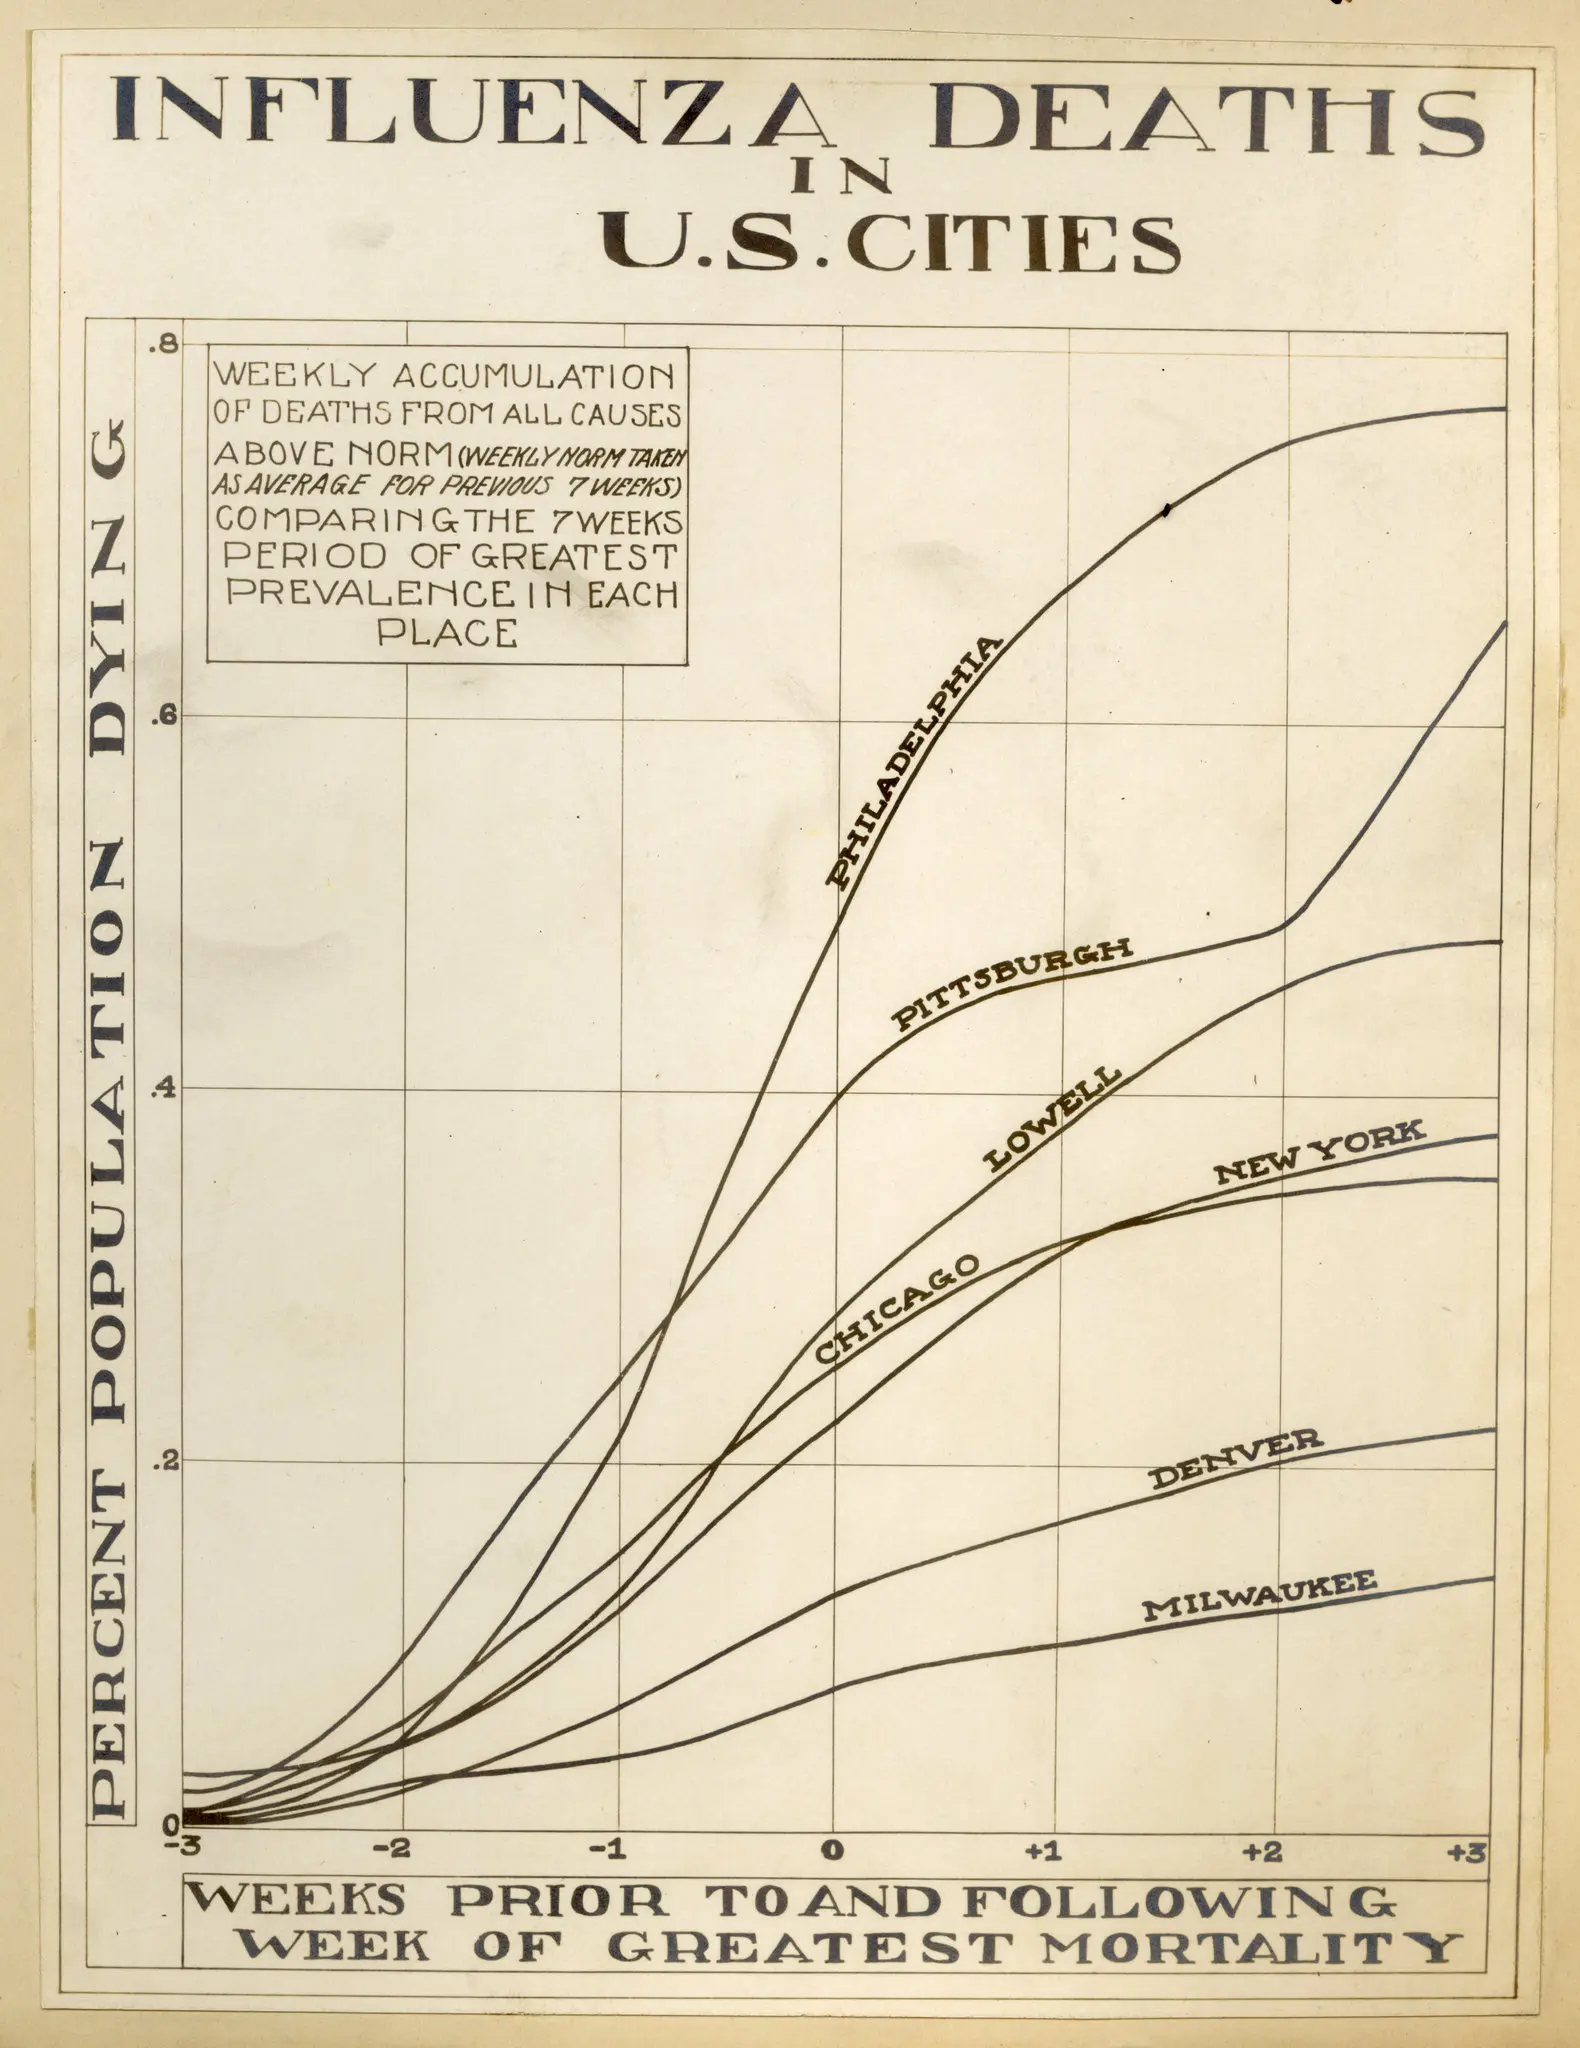 INFLUENZA DEATHS
IN
U.S. CITIES
PERCENT POPULATION DYING
.8
.6
.4
.2
0
WEEKLY ACCUMULATION
OF DEATHS FROM ALL CAUSES
ABOVE NORM (WEEKLY NORM TAKEN
AS AVERAGE FOR PREVIOUS 7 WEEKS)
COMPARING THE 7 WEEKS
PERIOD OF GREATEST
PREVALENCE IN EACH
PLACE
PHILADELPHIA
PITTSBURGH
LOWELL
NEW YORK
CHICAGO
DENVER
MILWAUKEE
-3 -2 -1 0 +1 +2 +3
WEEKS PRIOR TO AND FOLLOWING
WEEK OF GREATEST MORTALITY